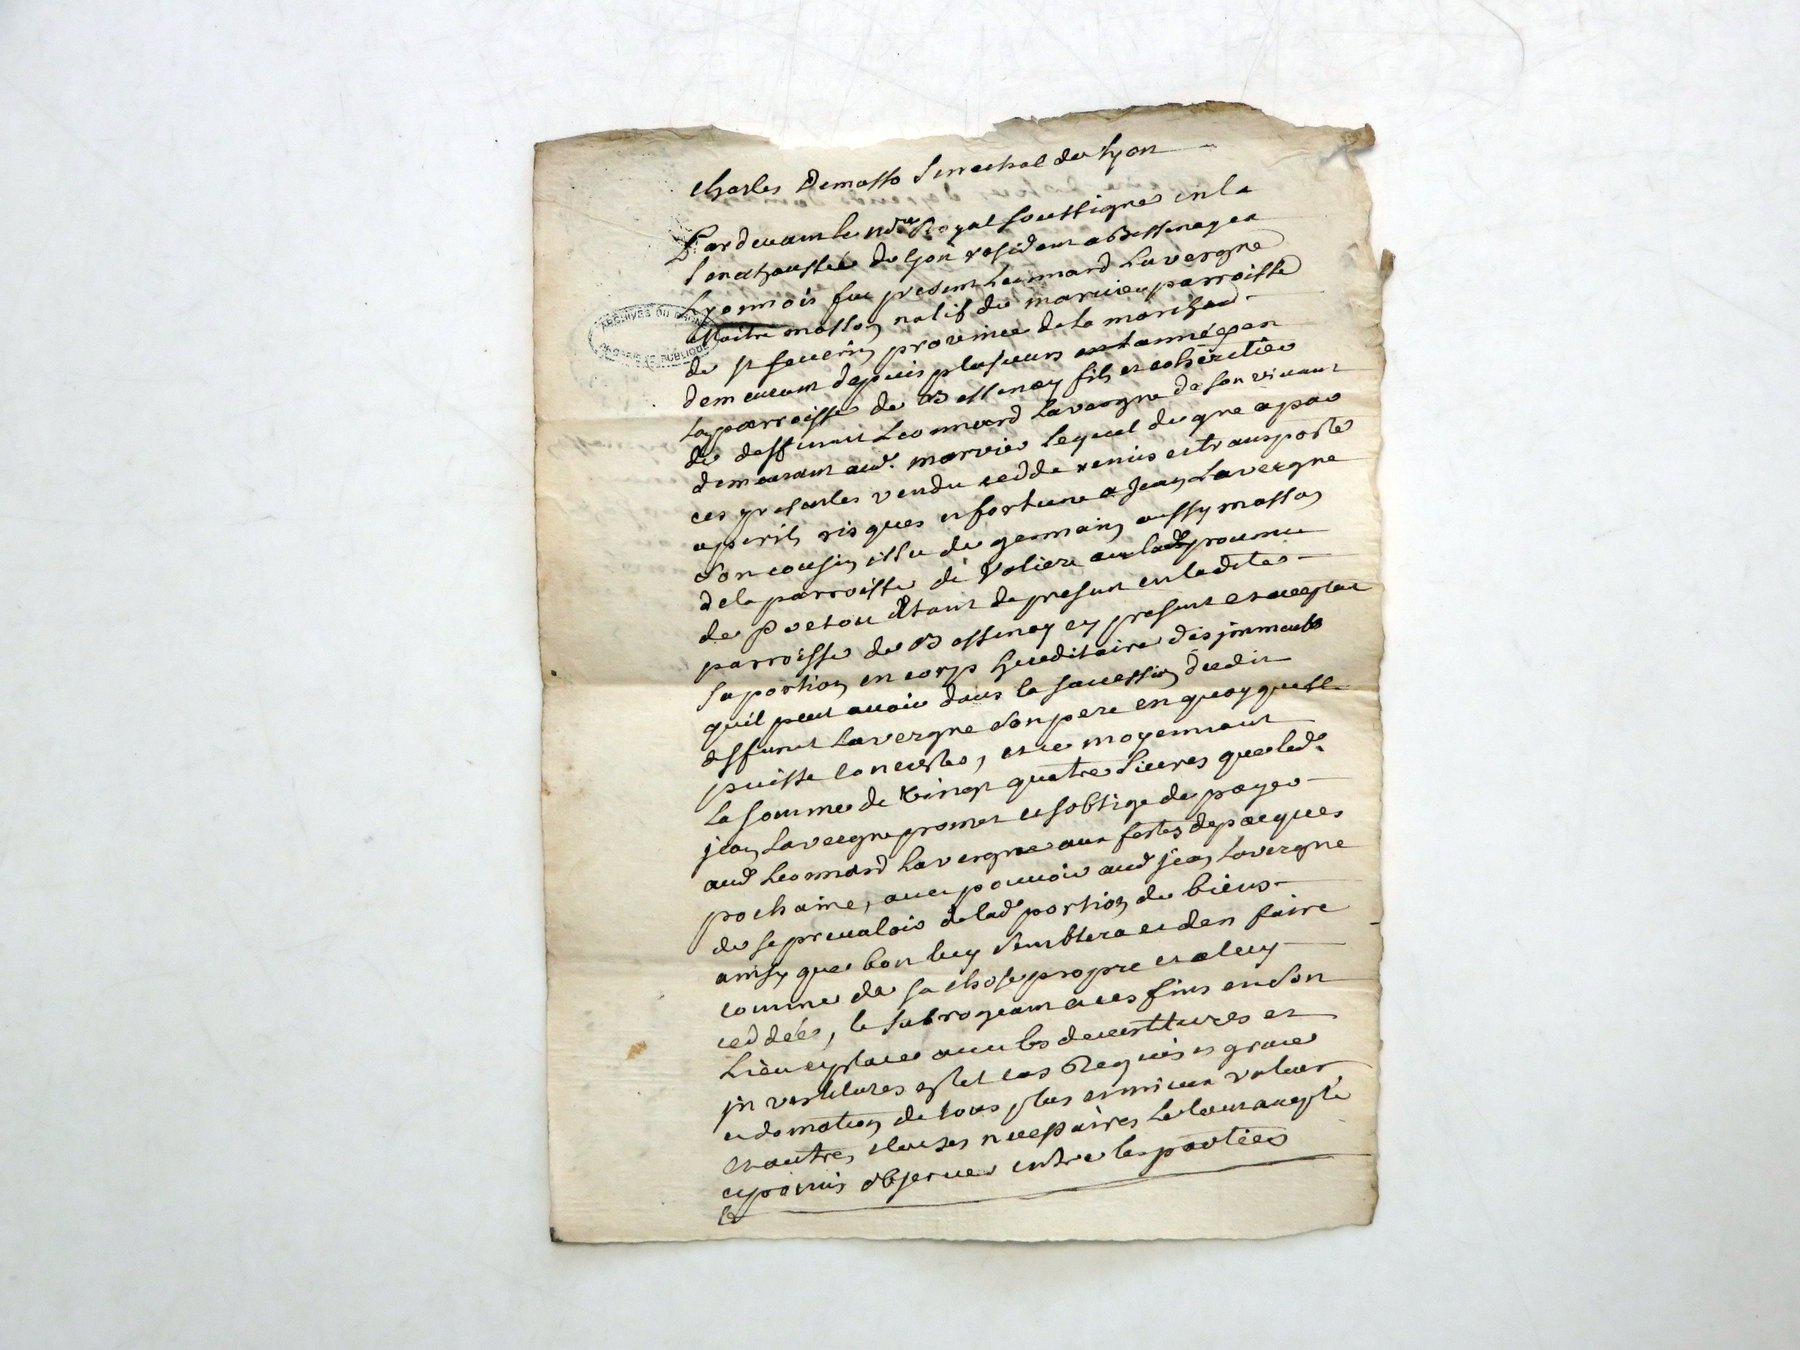 Charles Demasso Senechal de Lyon
Pardevant le no.re Royal soussigné en la
Senechaussée de Lyon resident a Bessenay en
Lyonnois fut present Leonnard Lavergne
Maitre masson natif de marvieu parroisse
de st severin province de la marche
demeurant depuis plusieurs année en
la parroisse de Bessenay fils et coheritier
de deffunt Leonnard Lavergne de son vivant
demeurant aud. marvieu lequel de gre a par
ces presentes vendu cedde remis et transporte
a perils risques et fortune a Jean Lavergne
son cousin issu de germain aussy masson
de la parroisse de
de Poetou étant de present en ladite
parroisse de Bessenay cy present et acceptant
sa portion en corps hereditaire des immeubles
qu'il peut avoir dans la succession dudit
deffunt Lavergne son pere en quoy quelle
puisse consister, et ce moyennant
la somme de vingt quatre livres que led.
jean Lavergne promet et soblige de payer
aud Leonnard Lavergne aux festes de pacques
prochaine, avec pouvoir aud jean Lavergne
de se prevaloir de lad portion de biens
ainsy que bon luy semblera et den faire
comme de sa chose propre et a luy
ceddée, le subrogeant a ces fins en son
Lieu et place avec les devestitures et
investitures en tel cas Requises grace
et donation de tous plus et mieux valuer
et autres clauses necessaires Le tout accepté
et promis observer entre les parties
ARCHIVES DU RHONE